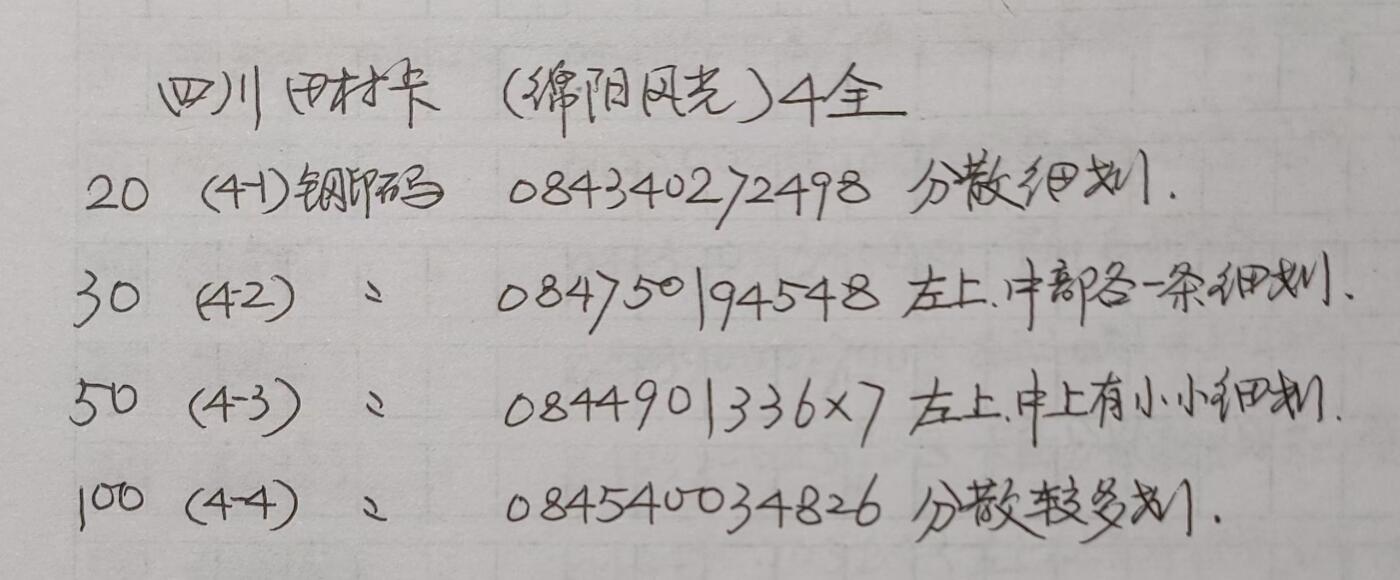 四川田村卡 (绵阳风光)4全
20 (4-1)钢印码 084340272498 分散细划.
30 (4-2) 〃 084750194548 左上、中部各一条细划.
50 (4-3) 〃 0844901336×7 左上、中上有小小细划.
100 (4-4) 〃 084540034826 分散较多划.